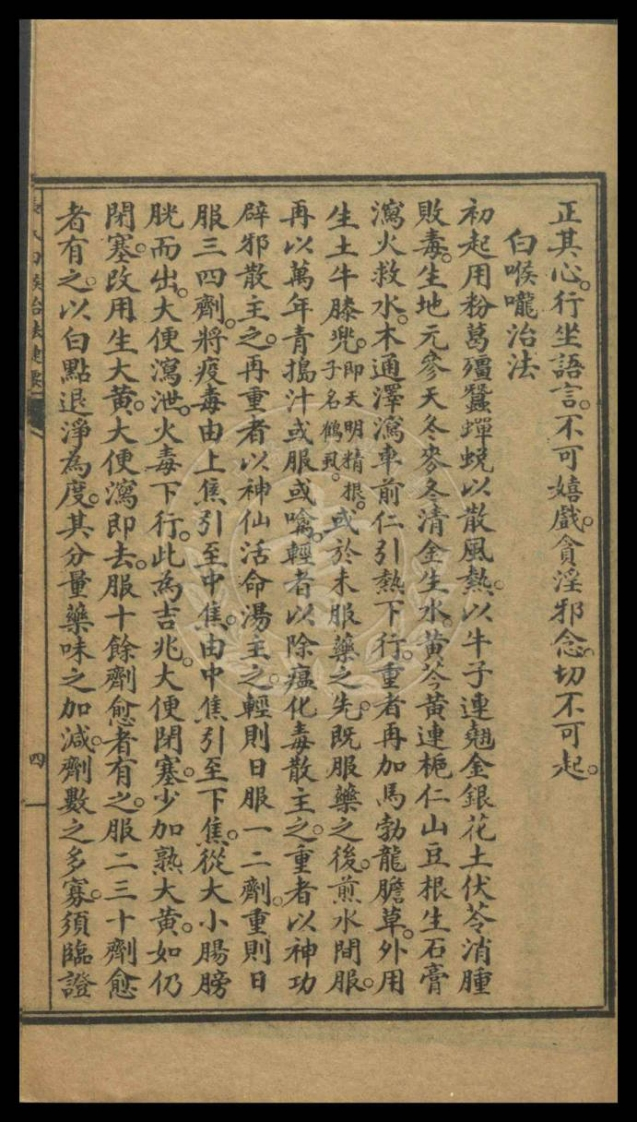 正其心。行坐語言。不可嬉戲。貪淫邪念。切不可起。
白喉嚨治法
初起用粉葛殭蠶蟬蛻以散風熱。以牛子連翹金銀花土伏苓消腫
敗毒。生地元參天冬麥冬清金生水。黃芩黃連梔仁山豆根生石膏
瀉火救水。木通澤瀉車前仁引熱下行。重者再加馬勃龍膽草。外用
生土牛膝兜。即天明精根。子名鶴虱。或於未服藥之先。既服藥之後。煎水間服。
再以萬年青搗汁或服或噙。輕者以除瘟化毒散主之。重者以神功
辟邪散主之。再重者以神仙活命湯主之。輕則日服一二劑。重則日
服三四劑。將疫毒由上焦引至中焦。由中焦引至下焦。從大小腸膀
胱而出。大便瀉泄。火毒下行。此為吉兆。大便閉塞。少加熟大黃。如仍
閉塞。改用生大黃。大便瀉即去。服十餘劑愈者有之。服二三十劑愈
者有之。以白點退淨為度。其分量藥味之加減。劑數之多寡。須臨證
四